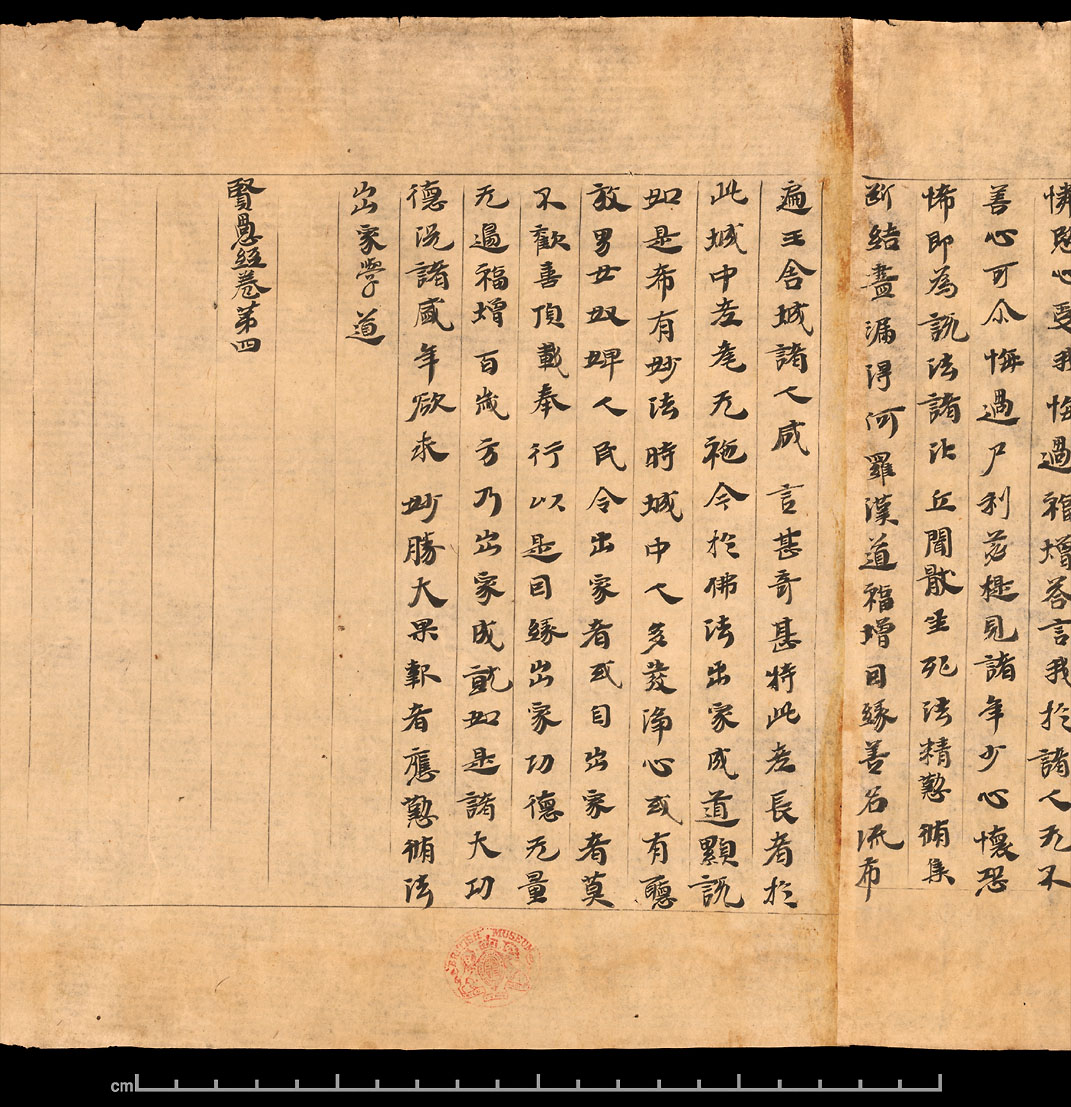 憐愍心受我悔過福增荅言我於諸人无不
善心可尒悔過尸利苾提見諸年少心懷恐
怖即為說法諸比丘聞猒生死法精懃脩集
断結盡漏得阿羅漢道福增因緣善名流布
遍王舍城諸人咸言甚奇甚特此老長者於
此城中老耄无施今於佛法出家成道顯說
如是希有妙法時城中人多發淨心或有聽
放男女奴婢人民令出家者或自出家者莫
不歡喜頂戴奉行以是因緣出家功德无量
无邊福增百歲方乃出家成就如是諸大功
德況諸盛年欲求妙勝大果報者應懃脩法
出家學道
賢愚經卷第四
BRITISH MUSEUM
cm